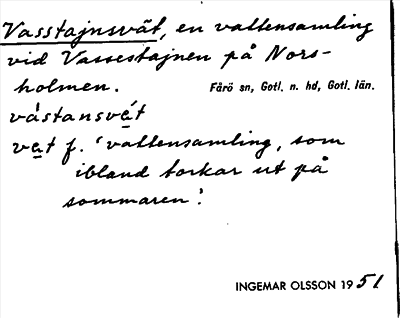 Vasstajnsvät, en vattensamling
vid Vassestajnen på Nors-
holmen. Fårö sn, Gotl. n. hd, Gotl. län.
våstansvét
vet f. 'vattensamling, som
ibland torkar ut på
sommaren'.
INGEMAR OLSSON 1951